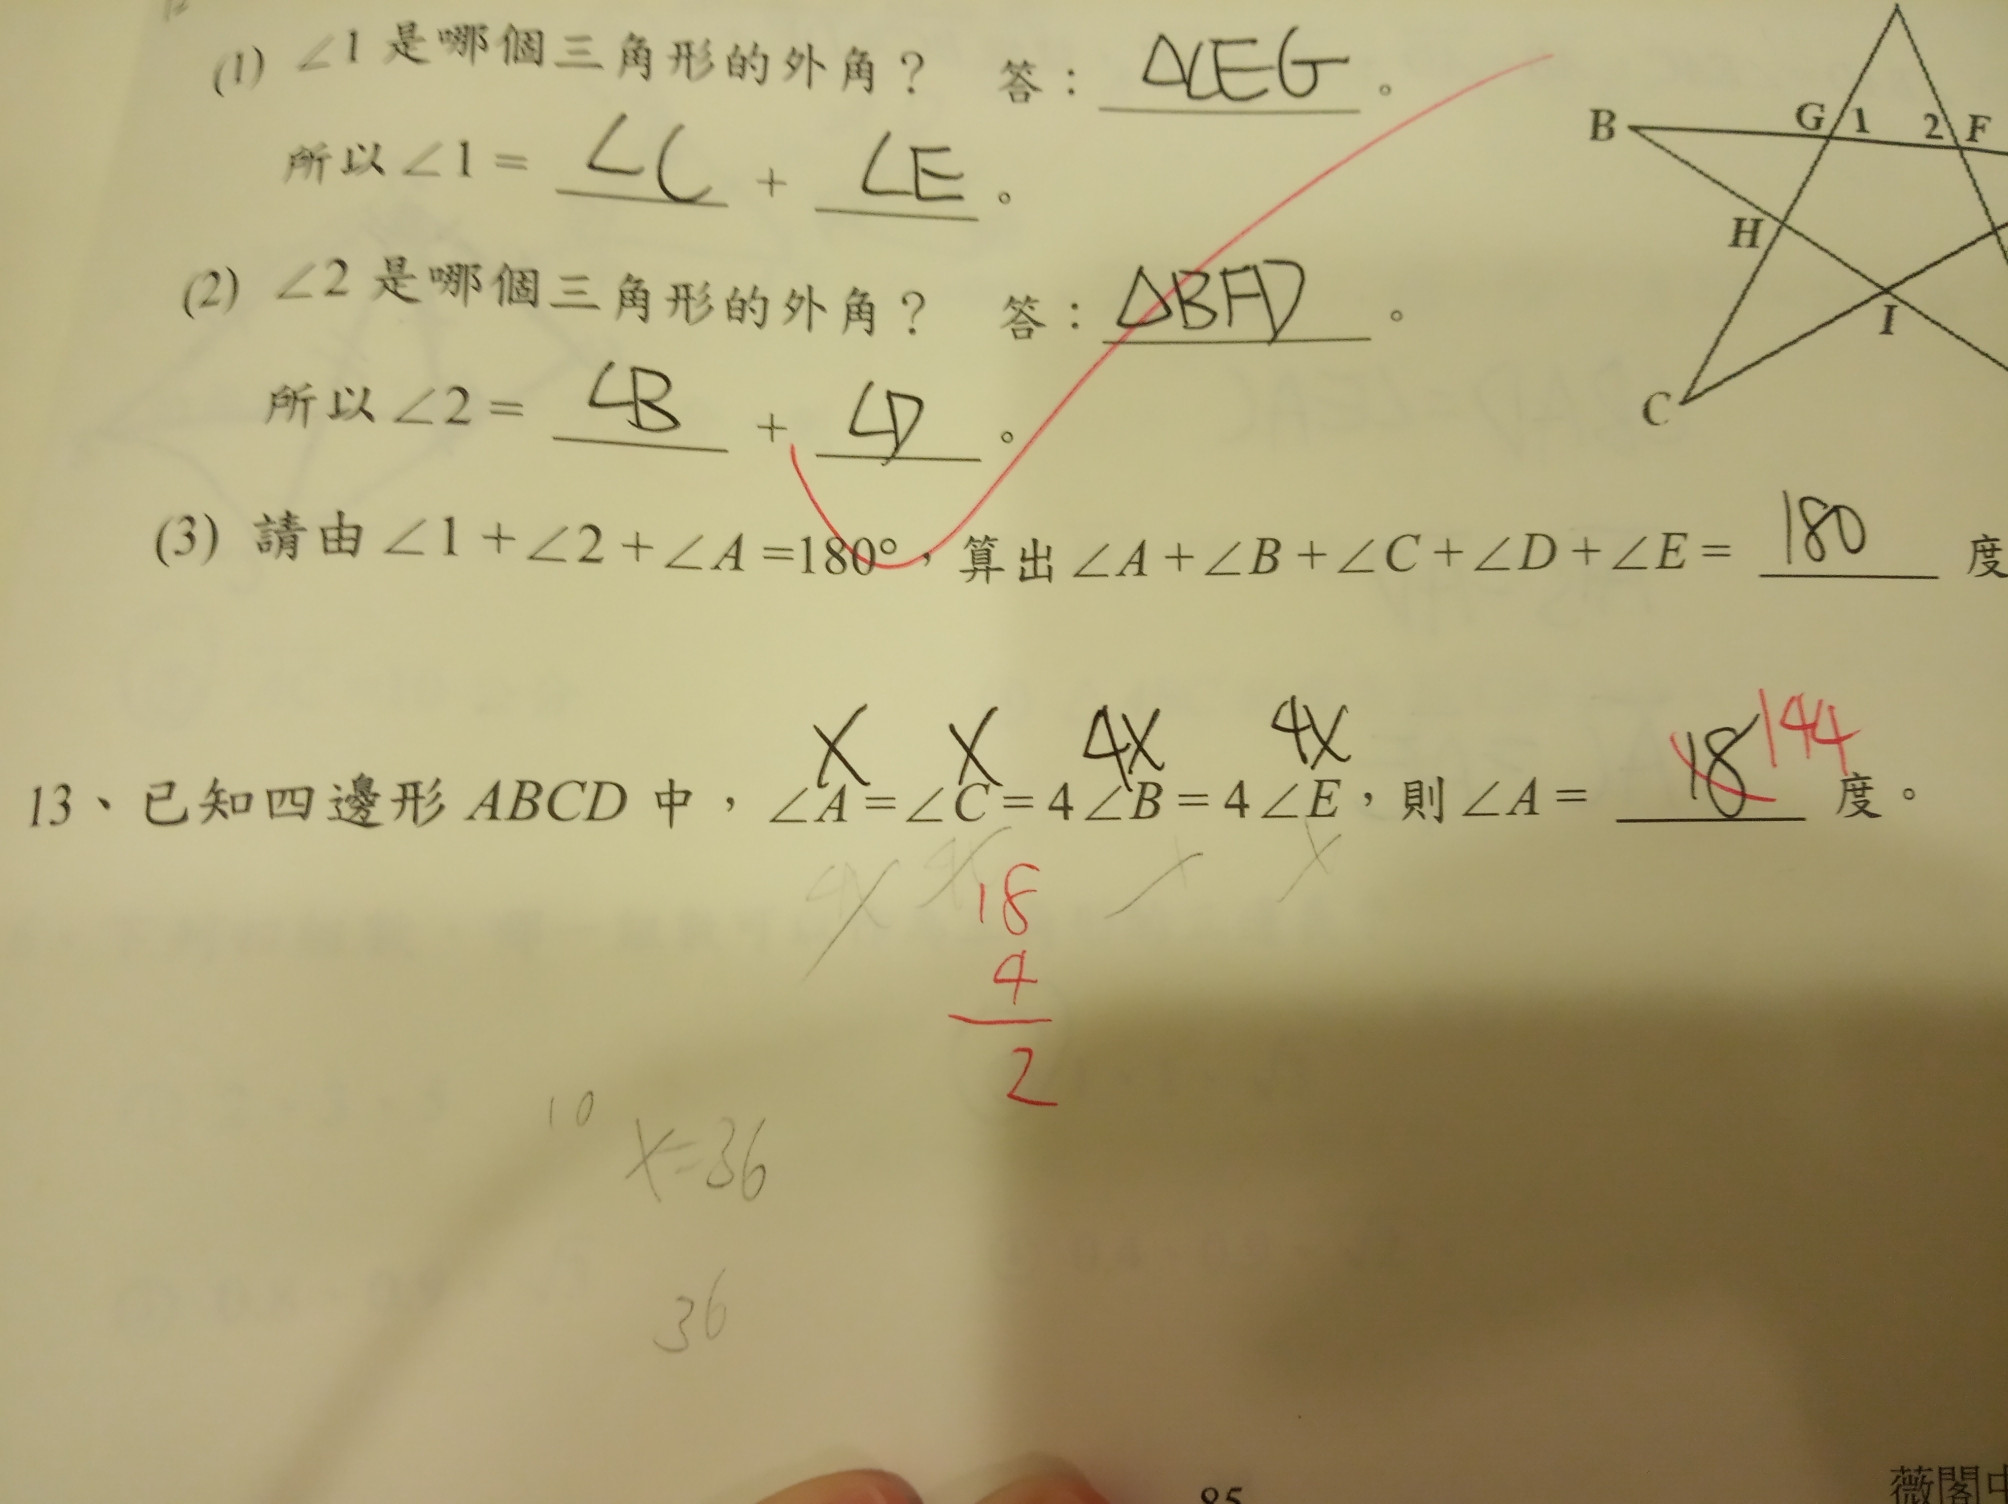 (1) ∠1 是哪個三角形的外角？ 答：△CEG。
所以∠1 = ∠C + ∠E。
(2) ∠2 是哪個三角形的外角？ 答：△BFD。
所以∠2 = ∠B + ∠D。
(3) 請由∠1+∠2+∠A=180°，算出∠A+∠B+∠C+∠D+∠E= 180 度
B G 1 2 F
H
I
C
X X 4X 4X
13、已知四邊形 ABCD 中，∠A=∠C=4∠B=4∠E，則∠A= 18 144 度。
4X 4X X X
18
4
2
10
X=36
36
85
薇閣